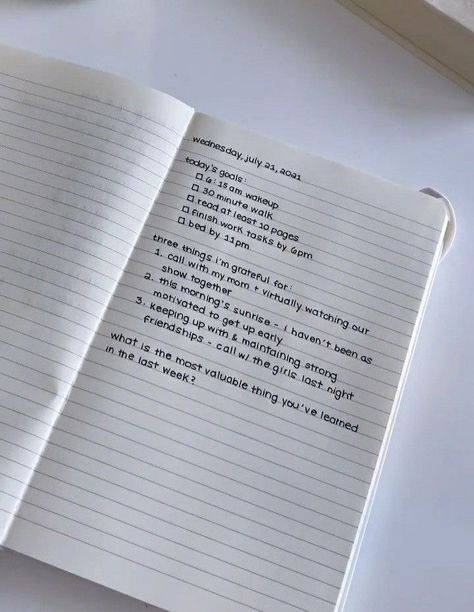 wednesday, july 21, 2021
today's goals:
☐ 6:15am wakeup
☐ 30 minute walk
☐ read at least 10 pages
☐ finish work tasks by 6pm
☐ bed by 11pm
three things i'm grateful for:
1. call with my mom + virtually watching our
show together
2. this morning's sunrise - i haven't been as
motivated to get up early
3. keeping up with & maintaining strong
friendships - call w/ the girls last night
what is the most valuable thing you've learned
in the last week?